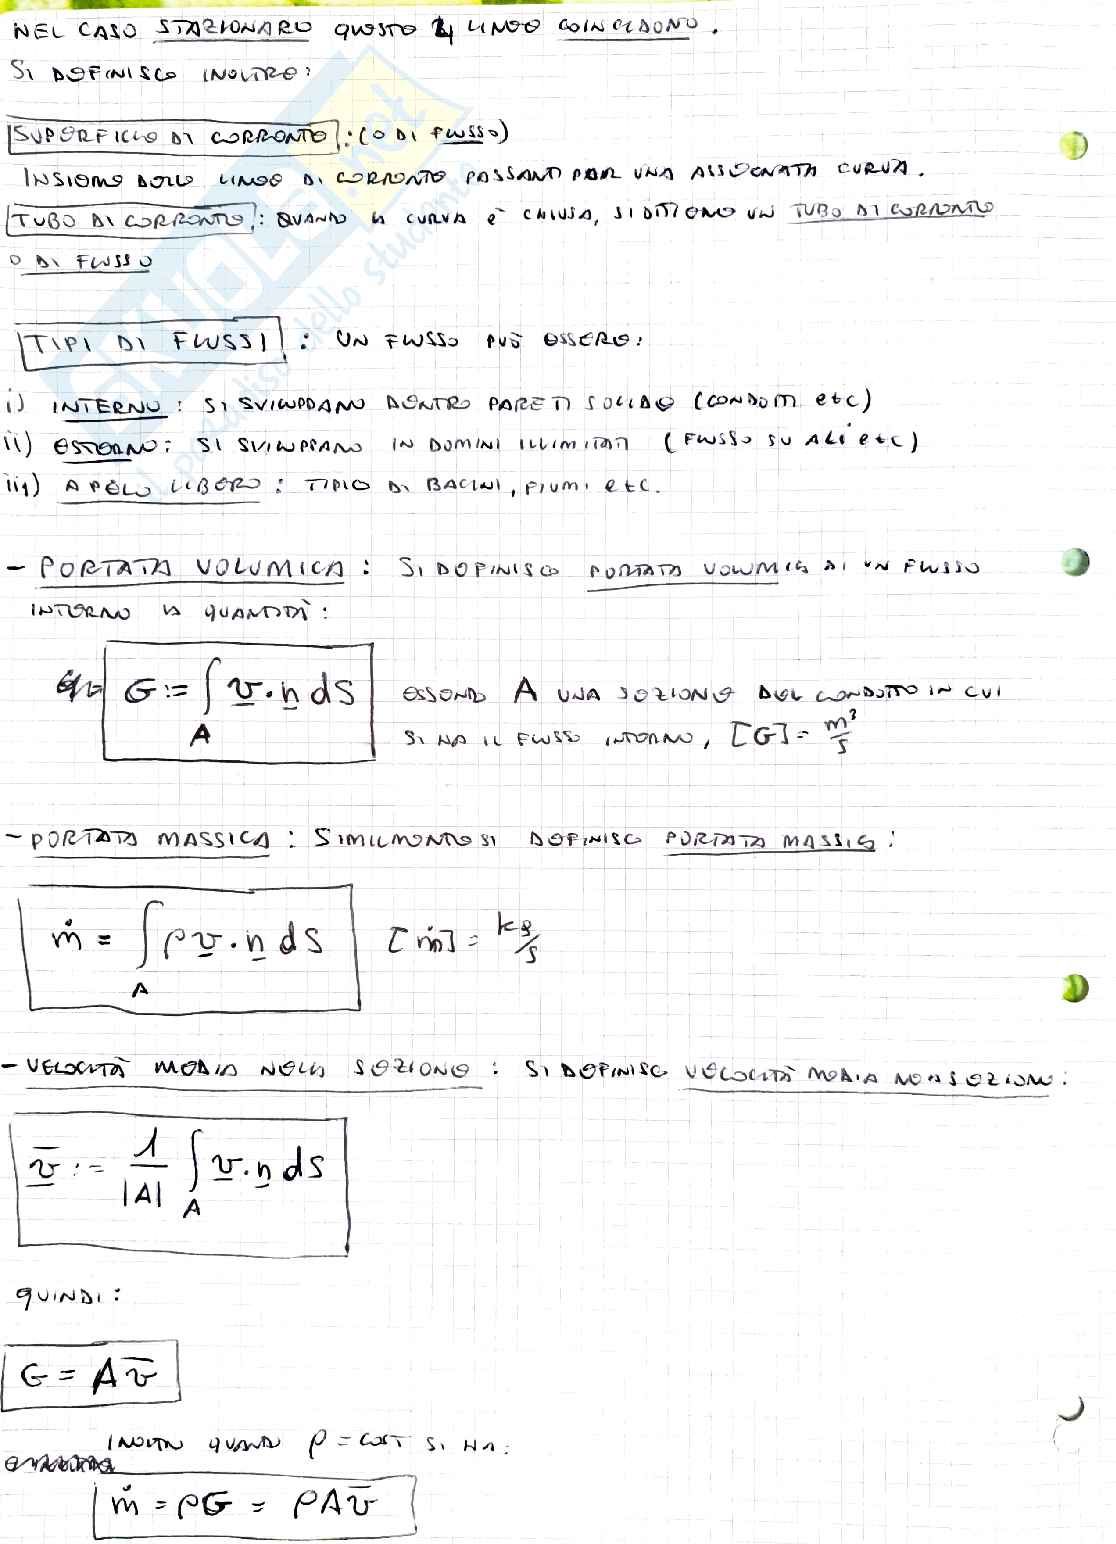 NEL CASO STAZIONARO QUESTE 4 LINEE COINCIDONO.
SI DEFINISCE INOLTRE:
SUPERFICIE DI CORRENTE: (O DI FLUSSO)
INSIEME DELLE LINEE DI CORRENTE PASSANTI PER UNA ASSEGNATA CURVA.
TUBO DI CORRENTE: QUANDO LA CURVA È CHIUSA, SI OTTIENE UN TUBO DI CORRENTE
O DI FLUSSO
TIPI DI FLUSSI: UN FLUSSO PUÒ ESSERE:
i) INTERNO: SI SVILUPPANO DENTRO PARETI SOLIDE (CONDOTTI etc)
ii) ESTERNO: SI SVILUPPANO IN DOMINI ILLIMITATI (FLUSSO SU ALI etc)
iii) A PELO LIBERO: TIPICO DI BACINI, FIUMI etc.
- PORTATA VOLUMICA: SI DEFINISCE PORTATA VOLUMICA DI UN FLUSSO
INTERNO LA QUANTITÀ:
G := ∫_A v · n dS ESSENDO A UNA SEZIONE DEL CONDOTTO IN CUI
SI HA IL FLUSSO INTERNO, [G] = m³/s
- PORTATA MASSICA: SIMILMENTE SI DEFINISCE PORTATA MASSICA:
ṁ = ∫_A ρ v · n dS [ṁ] = kg/s
- VELOCITÀ MEDIA NELLA SEZIONE: SI DEFINISCE VELOCITÀ MEDIA NELLA SEZIONE:
v̄ := 1/|A| ∫_A v · n dS
QUINDI:
G = A v̄
INOLTRE QUANDO ρ = COST SI HA:
ṁ = ρG = ρA v̄
SKUOLA.net
il paradiso dello studente